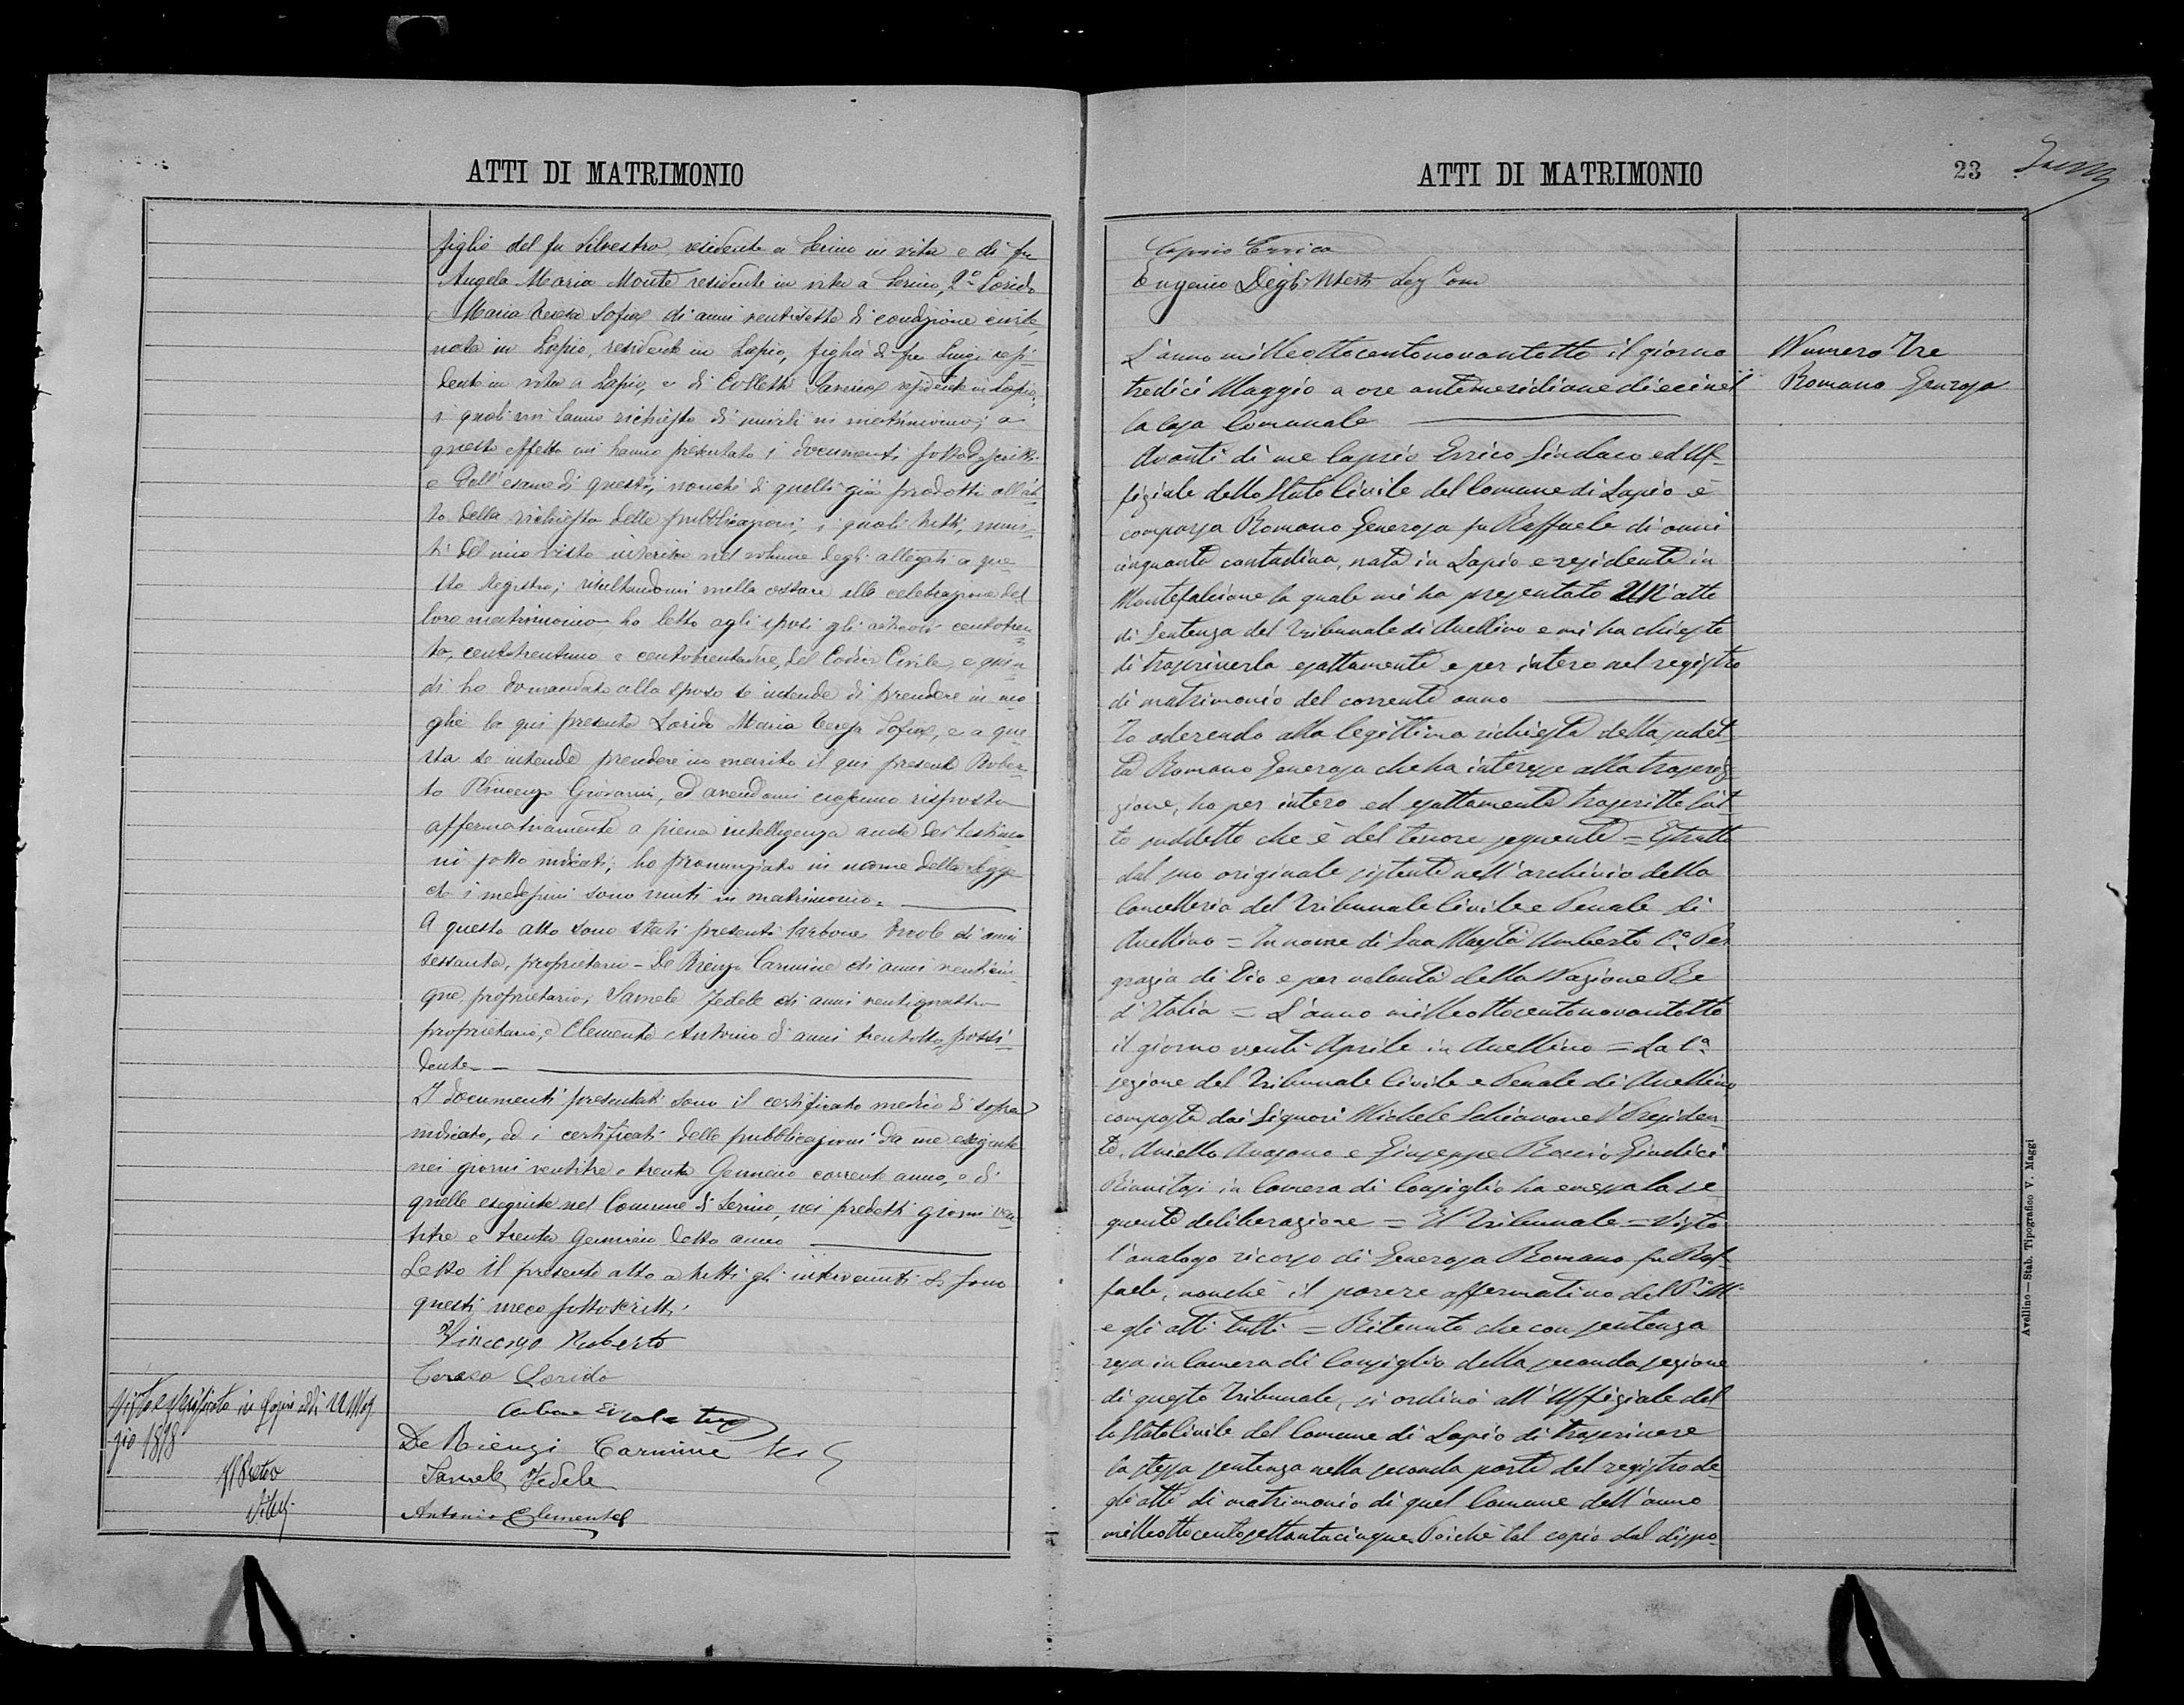 ATTI DI MATRIMONIO
figlio del fu Silvestro, residente a Serino in vita e di fu
Angela Maria Monte residente in vita a Serino, 2º Lorido
Maria Teresa Sofia di anni ventisette di condizione civile,
nata in Lapio, residente in Lapio, figlia di fu Luigi resi-
dente in vita a Lapio, e di Colletti residente in Lapio;
i quali mi hanno richiesto di unirli in matrimonio; a
questo effetto mi hanno presentato i documenti sottodescritti
e dall'esame di questi, nonché di quelli già prodotti all'at-
to della richiesta delle pubblicazioni, i quali tutti, muni-
ti del mio visto inserisco nel volume degli allegati a que-
sto registro; risultandomi nulla ostare alla celebrazione del
loro matrimonio ho letto agli sposi gli articoli centotren-
ta, centotrentuno e centotrentadue, del Codice Civile, e quin-
di ho domandato allo sposo se intende di prendere in mo-
glie la qui presente Lorido Maria Teresa Sofia, e a que-
sta se intende prendere in marito il qui presente Rober-
to Vincenzo Giovanni, ed avendomi ciascuno risposto
affermativamente a piena intelligenza anche dei testimo-
ni sotto indicati, ho pronunziato in nome della legge
che i medesimi sono uniti in matrimonio.
A questo atto sono stati presenti Carbone Ercole di anni
sessanta, proprietario - De Rienzi Carmine di anni venticin-
que, proprietario; Samele Fedele di anni ventiquattro
proprietario, e Clemente Antonio di anni trentotto, possi-
dente
I documenti presentati sono il certificato medico di sopra
indicato, ed i certificati delle pubblicazioni da me eseguite
nei giorni ventitre e trenta Gennaio corrente anno, e di
quelle eseguite nel Comune di Serino, nei predetti giorni ven-
titre e trenta Gennaio detto anno
Letto il presente atto a tutti gli intervenuti si sono
questi meco sottoscritti.
Vincenzo Roberto
Teresa Lorido
De Rienzi Carmine
Samele Fedele
Antonio Clemente
Visto e verificato in Lapio addì 22 Mag-
gio 1898
Il Pretore
ATTI DI MATRIMONIO
23
Caprio Errico
Eugenio Degl'Uberti Seg Com
L'anno milleottocentonovantotto il giorno
tredici Maggio a ore antemeridiane dieci nel
la Casa Comunale
Avanti di me Caprio Errico Sindaco ed Uf-
fiziale dello Stato Civile del Comune di Lapio è
comparsa Romano Generosa fu Raffaele di anni
cinquanta contadina, nata in Lapio e residente in
Montefalcione la quale mi ha presentato UN atto
di Sentenza del Tribunale di Avellino e mi ha chiesto
di trascriverla esattamente e per intero nel registro
di matrimonio del corrente anno
Io aderendo alla legittima richiesta della sudet-
ta Romano Generosa che ha interesse alla trascri-
zione, ho per intero ed esattamente trascritto l'at-
to suddetto che è del tenore seguente = Estratto
dal suo originale sistente nell'archivio della
Cancelleria del Tribunale Civile e Penale di
Avellino = In nome di Sua Maestà Umberto Iº Per
grazia di Dio e per volontà della Nazione Re
d'Italia = L'anno milleottocentonovantotto
il giorno venti Aprile in Avellino = La 1ª
sezione del Tribunale Civile e Penale di Avellino,
composta dai Signori Michele Schiavone V. Presiden
te, Aniello Avagano e Giuseppe Giudici
Riunitasi in Camera di Consiglio ha emessa la se-
guente deliberazione = Il Tribunale = Visto
l'analogo ricorso di Generosa Romano fu Raf-
faele, nonché il parere affermativo del P.M.
e gli atti tutti = Ritenuto che con sentenza
resa in Camera di Consiglio della seconda sezione
di questo Tribunale, si ordinò all'Uffiziale del-
lo Stato Civile del Comune di Lapio di trascrivere
la stessa sentenza nella seconda parte del registro de-
gli atti di matrimonio di quel Comune dell'anno
milleottocentosettantacinque. Poichè tal copia dal dispo-
Numero Tre
Romano Generosa
Avellino—Stab. Tipografico V. Maggi